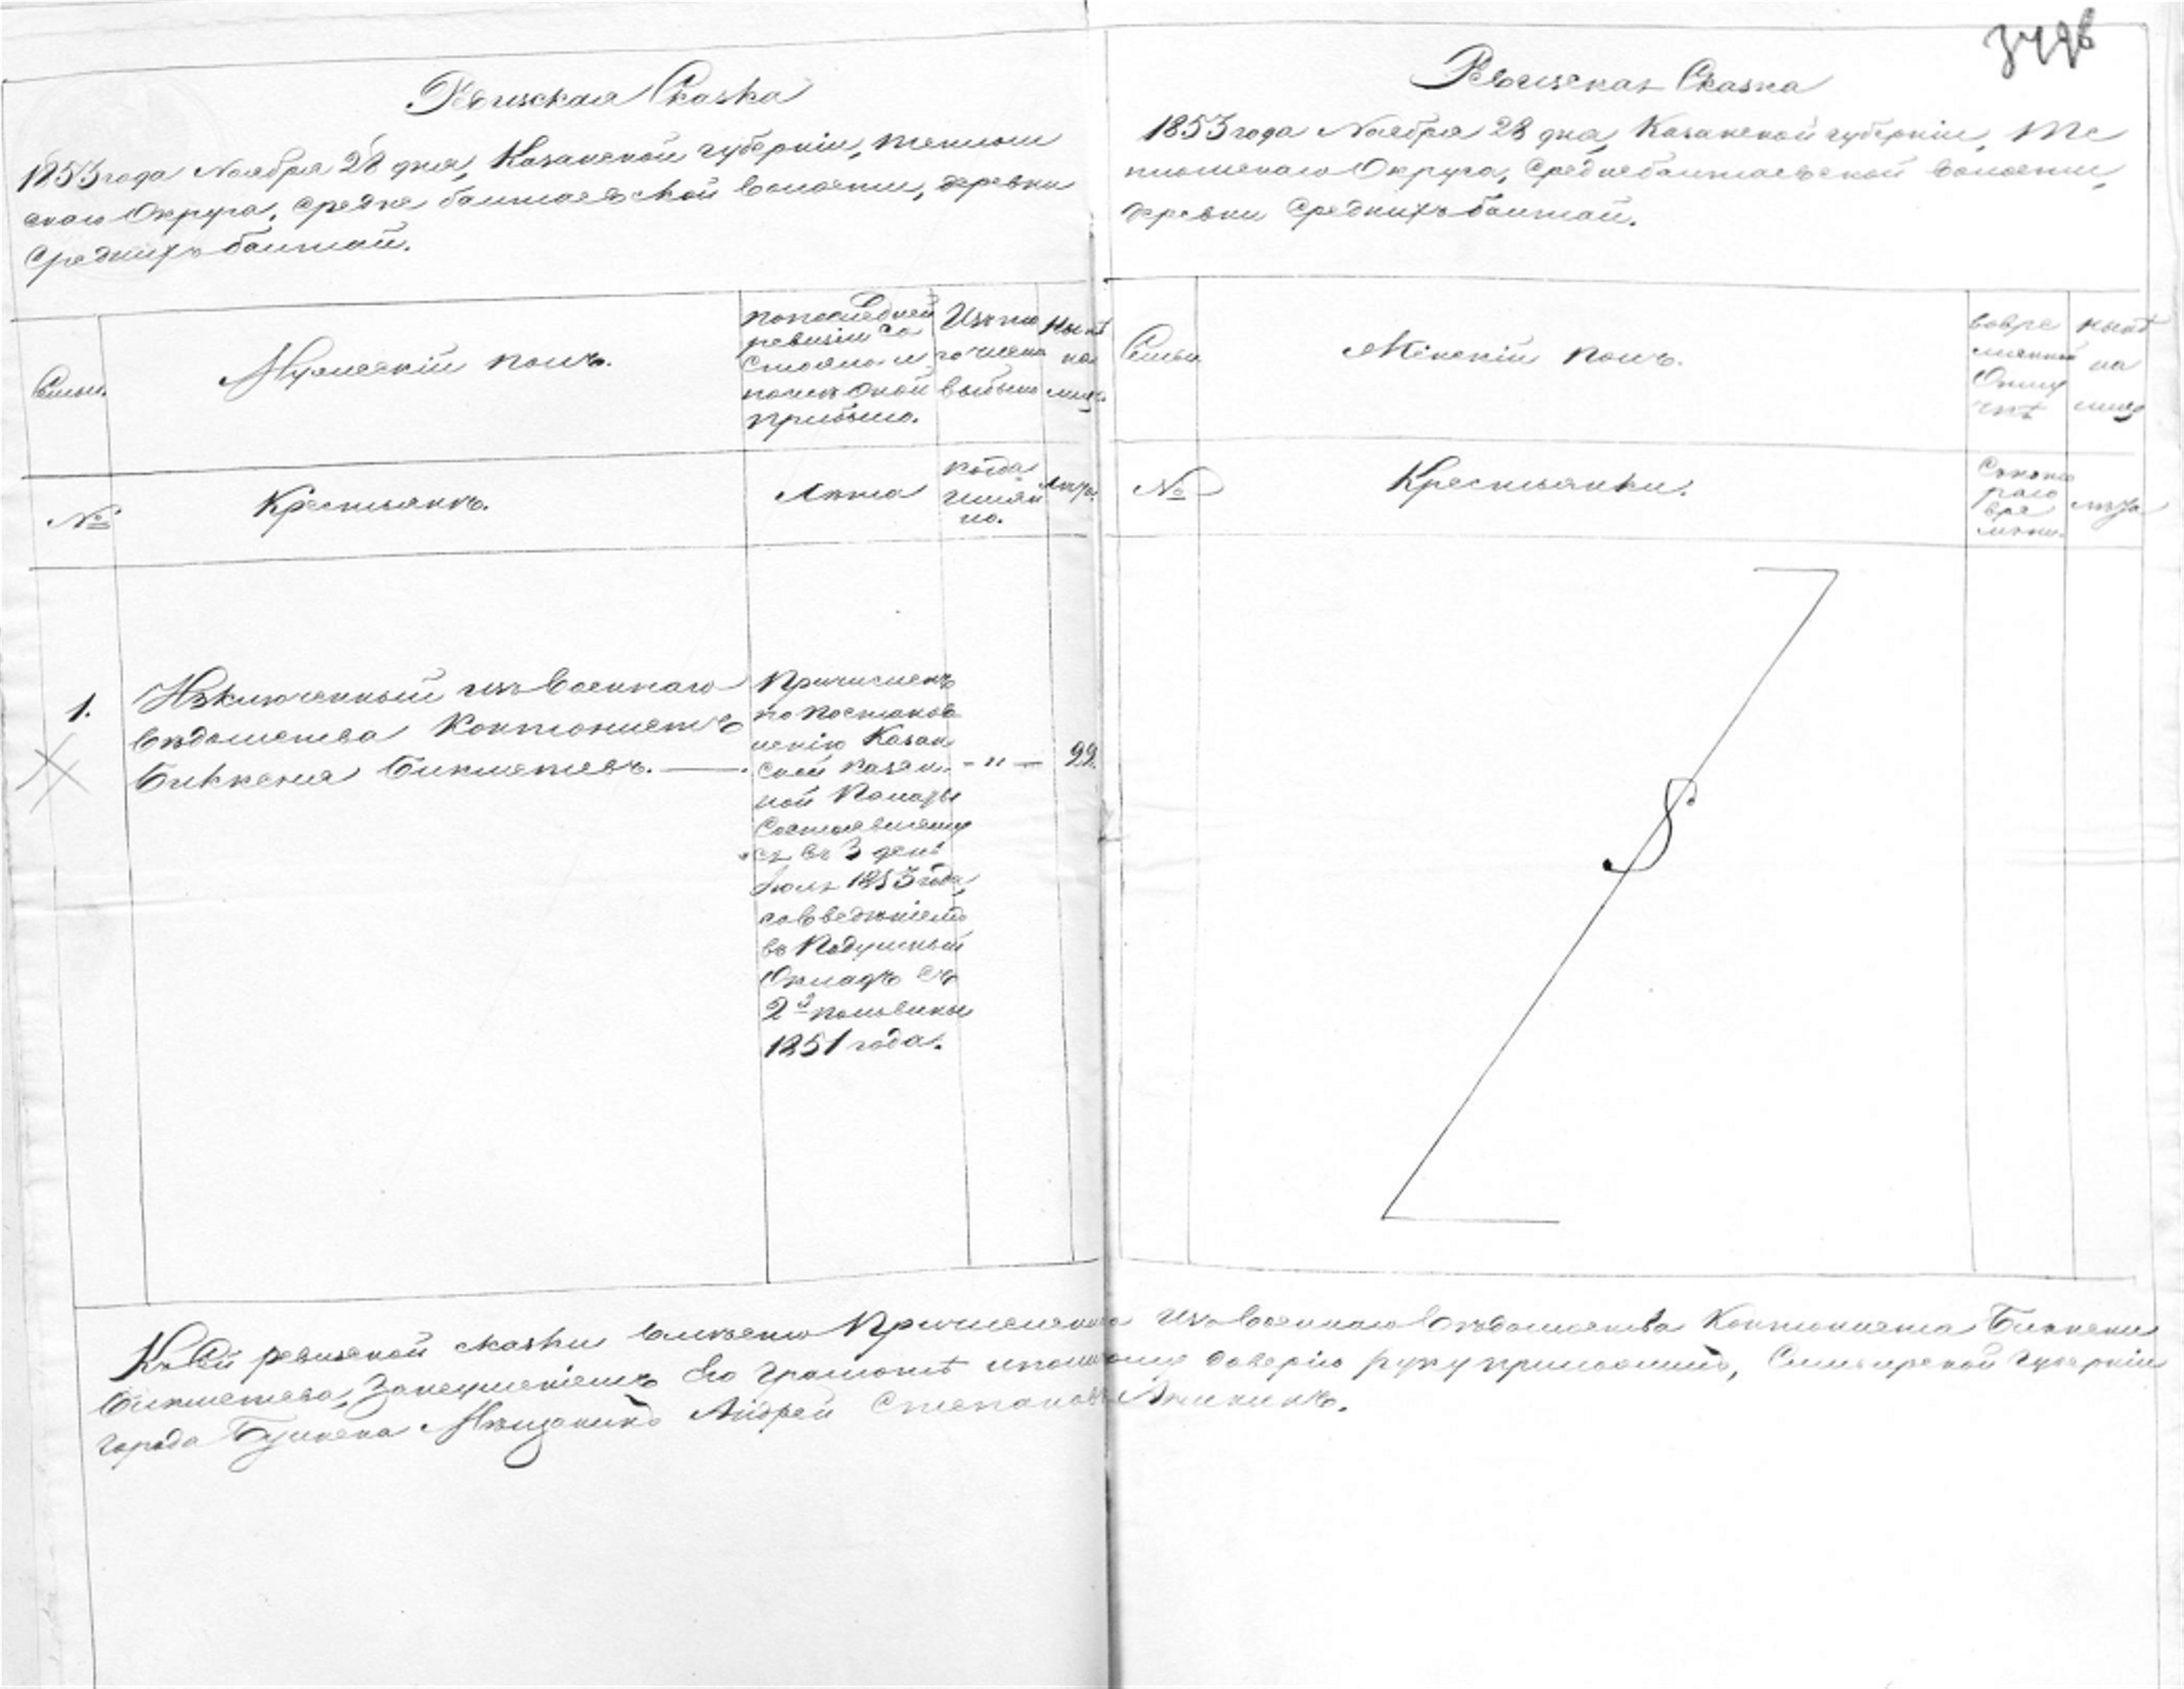 Ревизская Сказка
1853 года Ноября 28 дня, Казанской губернiи, тетюш
скаго Округа, средне балтаевской волости, деревни
Среднихъ балтай.
Семьи.
Мужескiй полъ.
по последней
ревизiи со
стояло и
после оной
прибыло.
Изъ то
го числа
выбыло
Нынѣ
на
лицо.
№
Крестьянъ.
Лѣта
когда
имян
но.
Лѣта.
1.
Изключенный изъ Военнаго
вѣдомства Кантонистъ
Биккеня Бикметевъ.
Причисленъ
по постанов
ленiю Казан
ской казен
ной Палаты
состоявшему
ся въ 3 день
Iюля 1853 года,
со введѣнiемъ
въ Подушный
Окладъ съ
2й половины
1851 года.
- " -
22.
349б
Ревизская Сказка
1853 года Ноября 28 дня, Казанской губернiи, Те
тюшскаго Округа, среднебалтаевской волости,
деревни Среднихъ балтай.
Семьи.
Женскiй полъ.
во вре
мянной
Отлу
чкѣ
нынѣ
на
лицо
№
Крестьянки.
Съ кото
раго
вре
мѣни.
лѣта
Къ сей ревизской сказки вмѣсто Причисленна изъ Военнаго Вѣдомства Кантониста Биккени
Бикметева, за неумѣнiемъ его грамотѣ и по личной доверiю руку приложилъ, Симбирской губернiи
города Буинска Мѣщанинъ Андрей Степановъ Аникинъ.